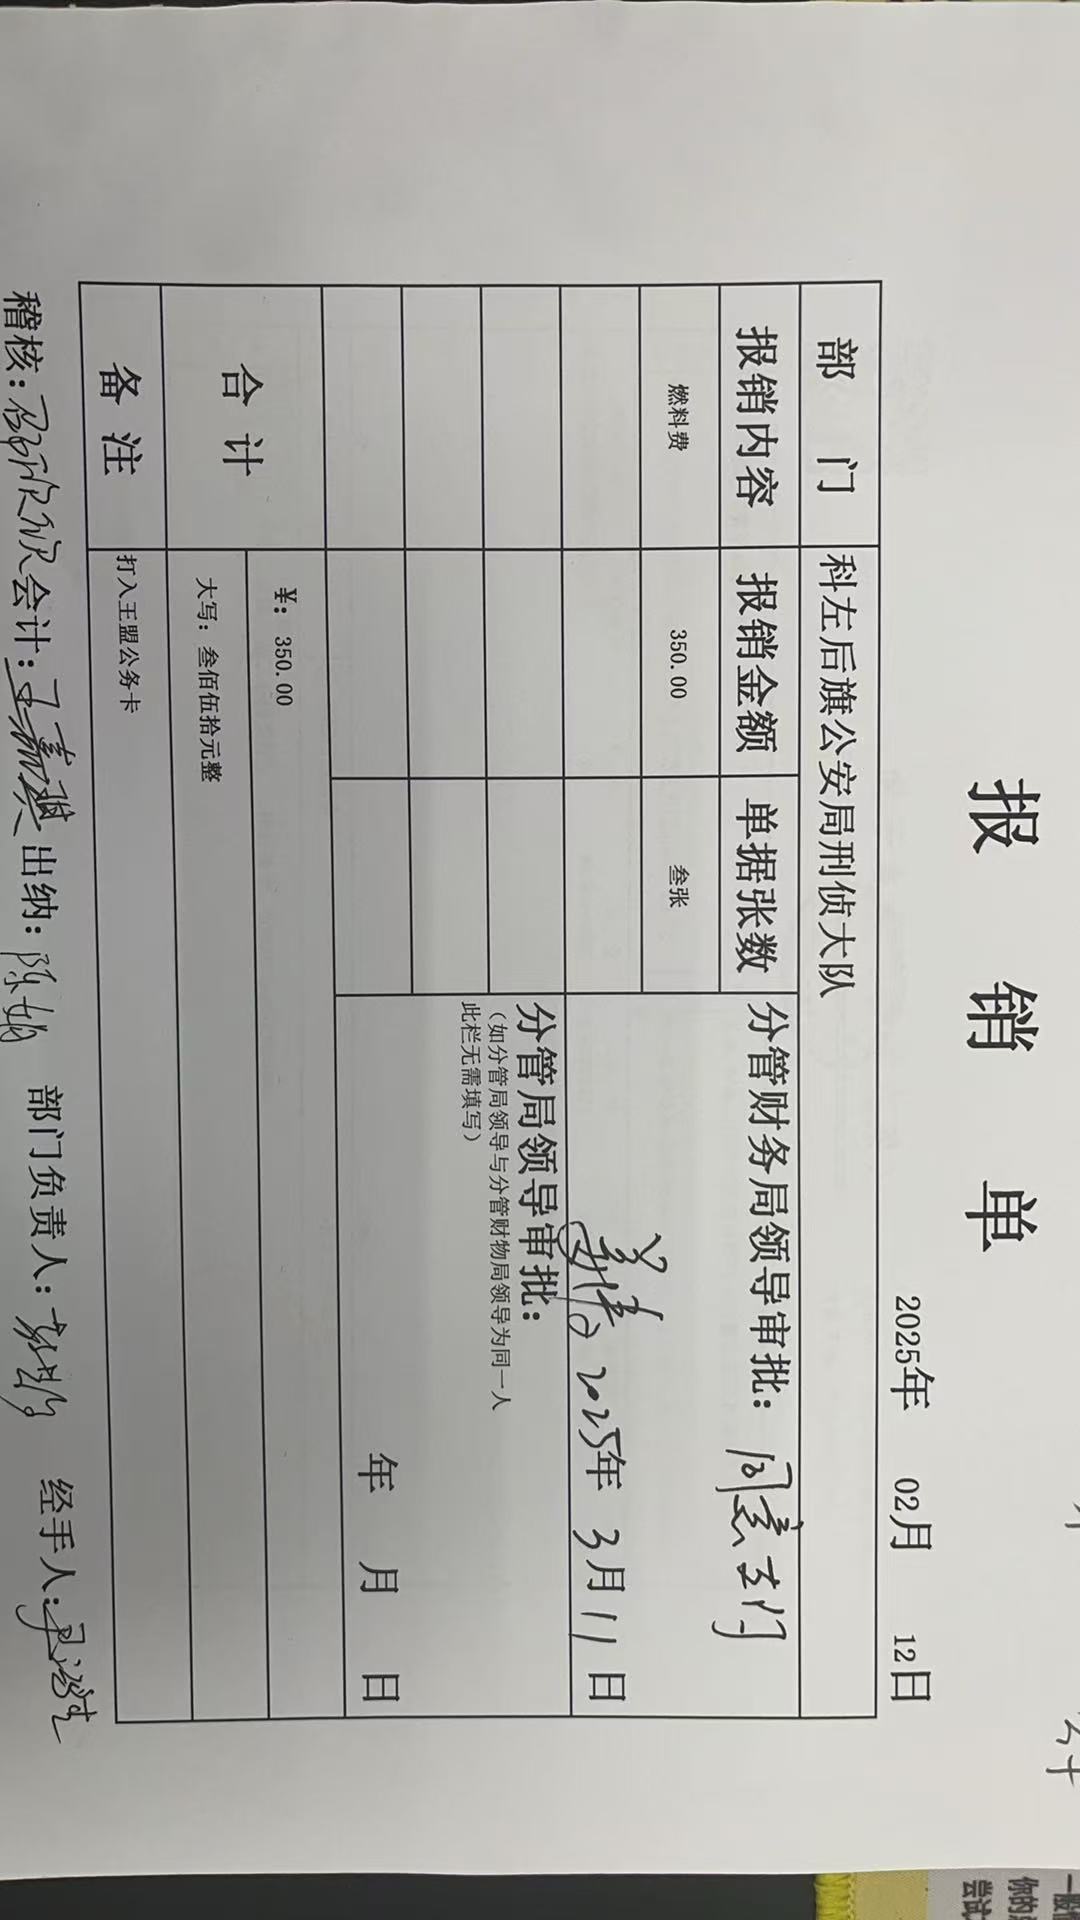 报 销 单
2025年 02月 12日
部 门 科左后旗公安局刑侦大队
报销内容 报销金额 单据张数 分管财务局领导审批：同意支付
燃料费 350.00 叁张
2025年 3月11日
分管局领导审批：
（如分管局领导与分管财物局领导为同一人
此栏无需填写）
年 月 日
合 计 ¥：350.00
大写：叁佰伍拾元整
备 注 打入王盟公务卡
稽核： 会计：王嘉琪 出纳：陈娟 部门负责人： 经手人：